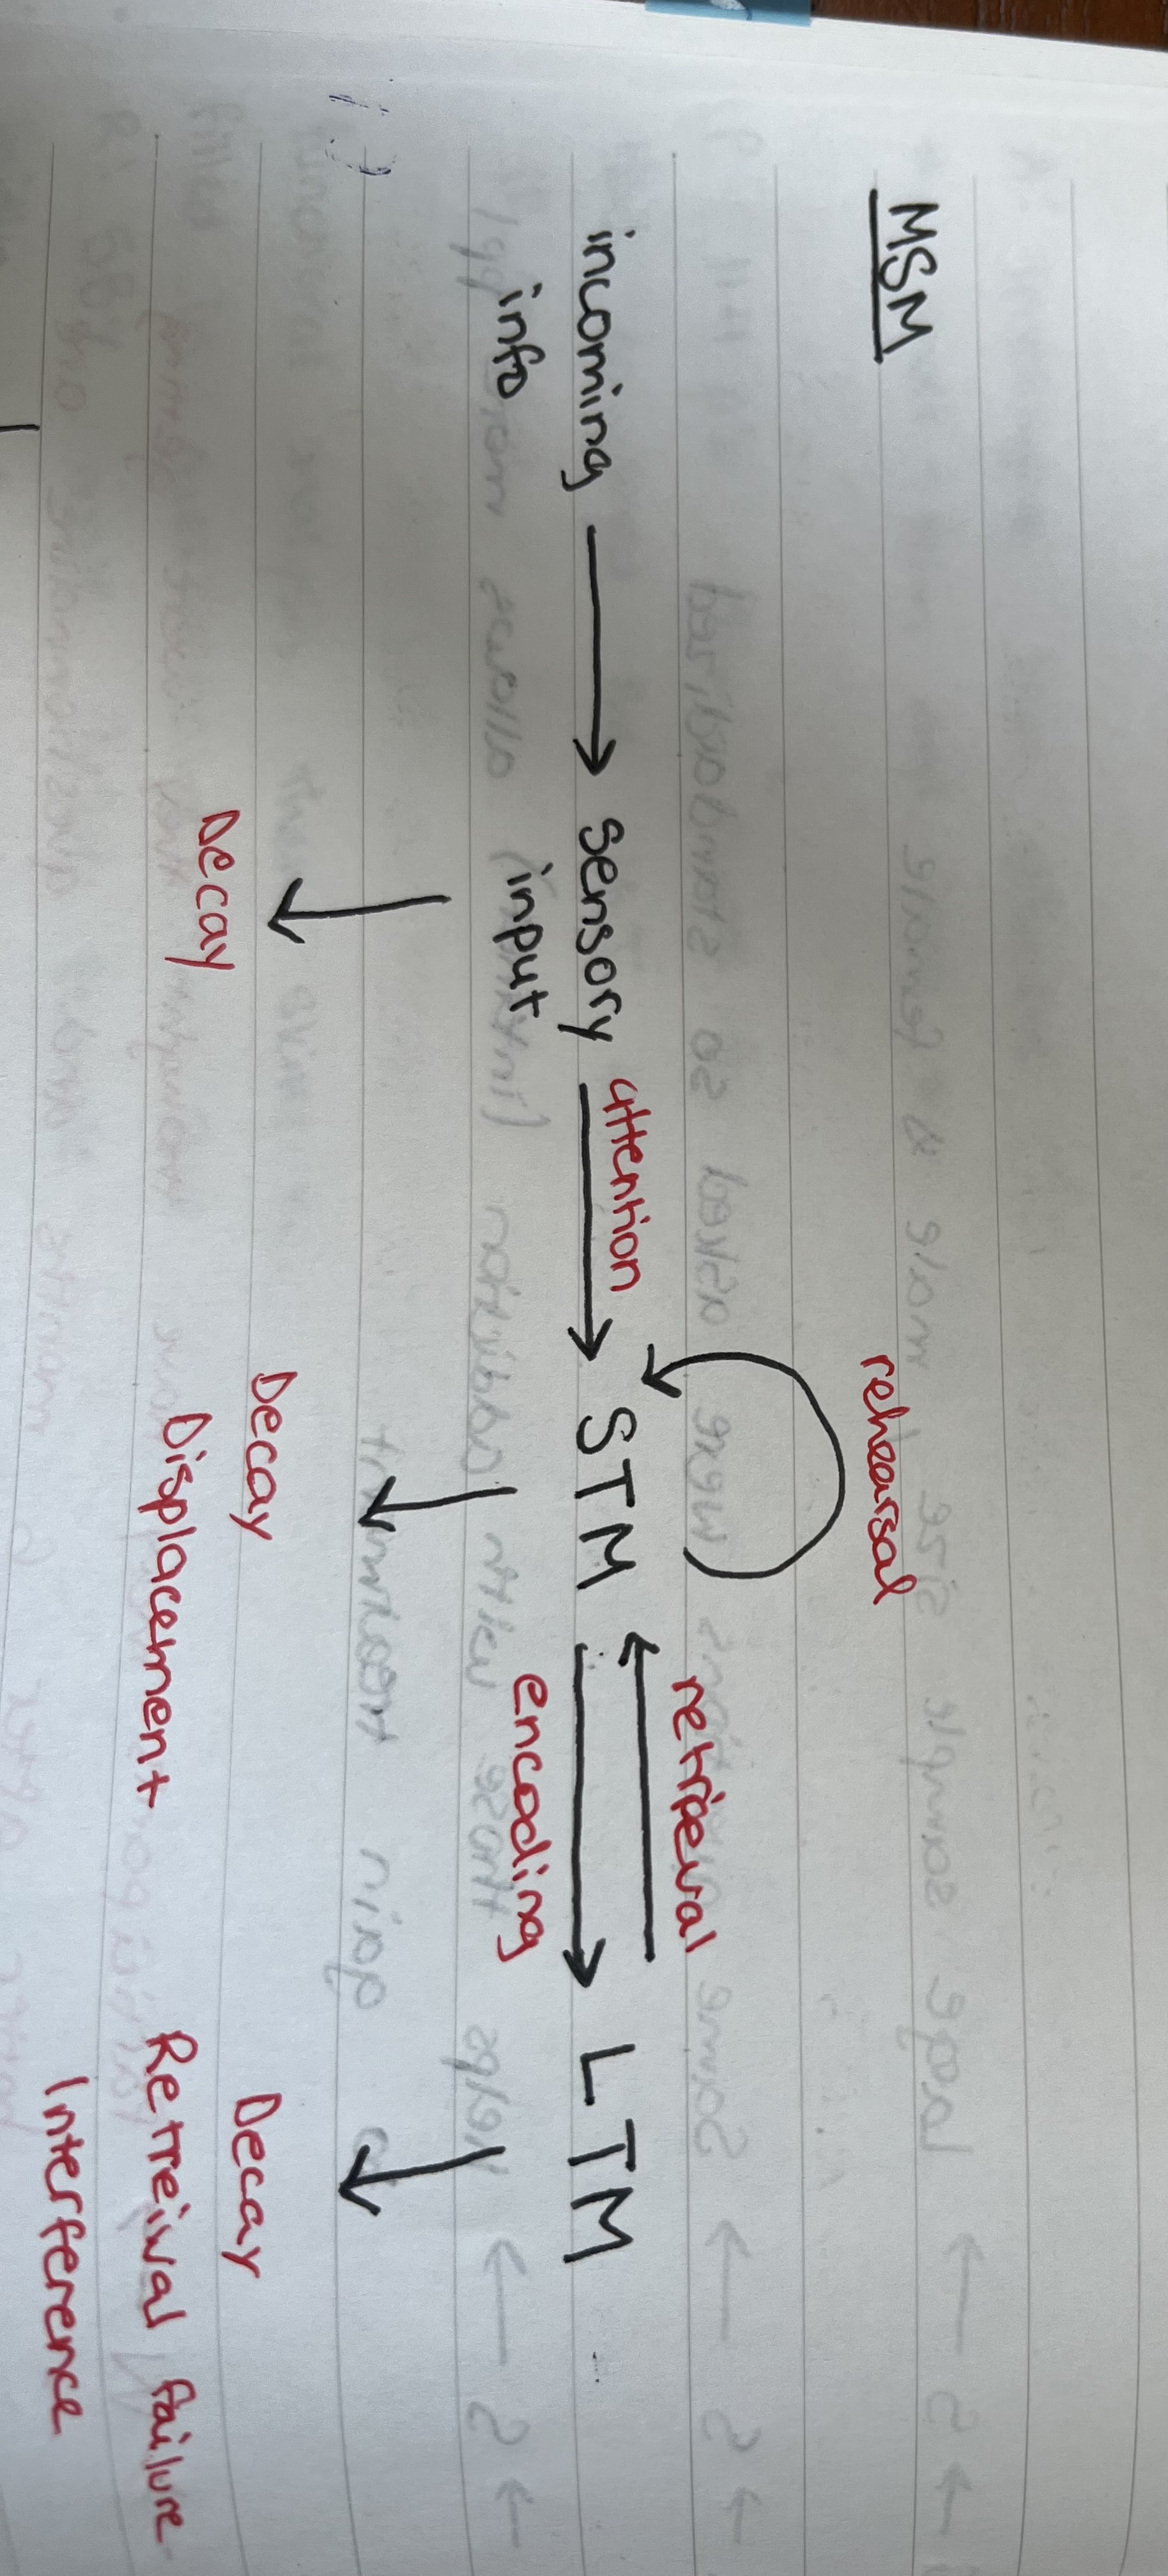 MSM
rehearsal
attention
retrieval
incoming
info
sensory
input
STM
LTM
encoding
Decay
Decay
Displacement
Decay
Retreival failure
Interference